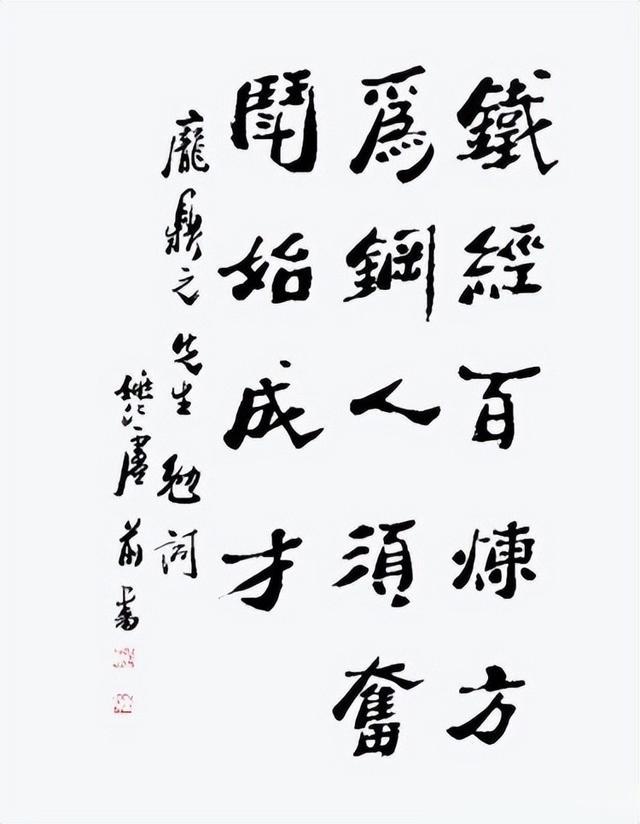 鐵經百煉方
爲鋼人須奮
鬥始成才
龐鼎之先生勉詞
前書